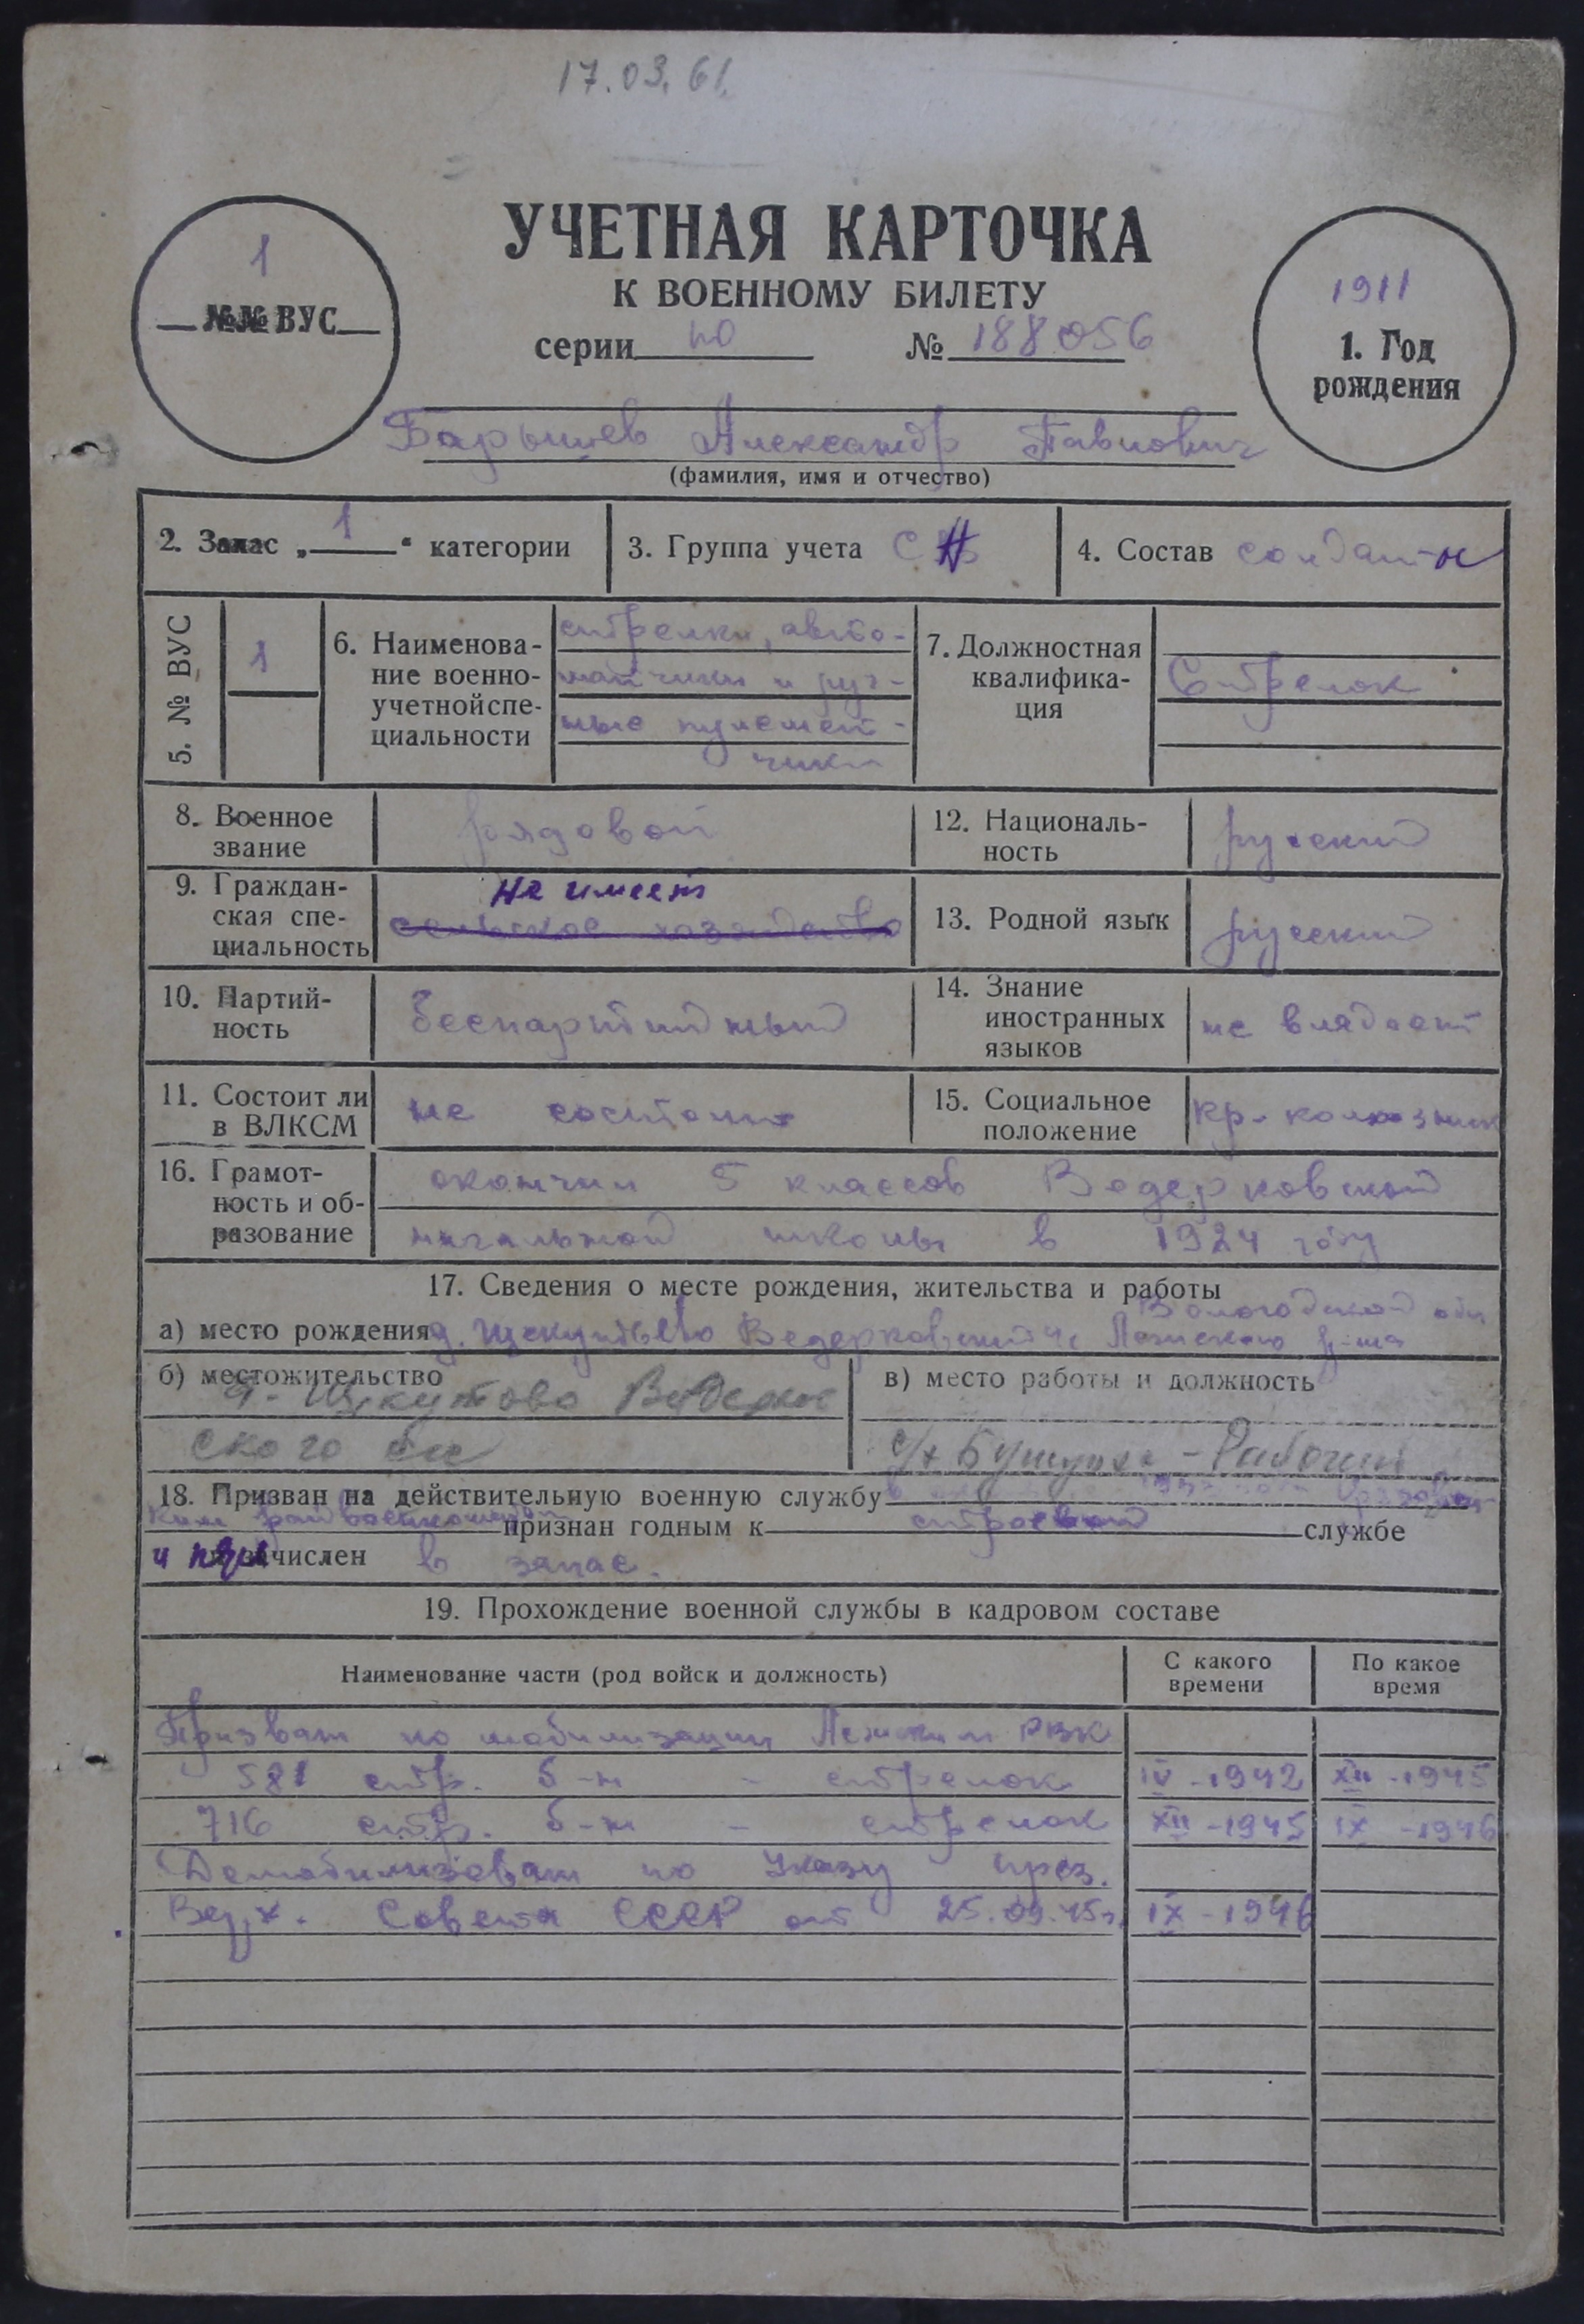 17.03.61.
УЧЕТНАЯ КАРТОЧКА
К ВОЕННОМУ БИЛЕТУ
серии по № 188056
1
№№ ВУС
1911
1. Год
рождения
Барышев Александр Павлович
(фамилия, имя и отчество)
2. Запас „ 1 " категории
3. Группа учета С
4. Состав солдаты
5. № ВУС
1
6. Наименова-
ние военно-
учетной спе-
циальности
стрелки, авто-
матчики и руч-
ные пулемет-
чики
7. Должностная
квалифика-
ция
Стрелок
8. Военное
звание
рядовой
12. Националь-
ность
русский
9. Граждан-
ская спе-
циальность
не имеет
сельское хозяйство
13. Родной язык
русский
10. Партий-
ность
беспартийный
14. Знание
иностранных
языков
не владеет
11. Состоит ли
в ВЛКСМ
не состоит
15. Социальное
положение
кр-колхозник
16. Грамот-
ность и об-
разование
окончил 5 классов Ведерковской
начальной школы в 1924 году
17. Сведения о месте рождения, жительства и работы
Вологодской обл
а) место рождения д. Щекутьево Ведерковский Лежского р-на
б) местожительство
д. Щекутово Ведерков
ского
в) место работы и должность
с/х - Рабочий
18. Призван на действительную военную службу в
ким райвоенкоматом признан годным к строевой службе
и зачислен в запас.
19. Прохождение военной службы в кадровом составе
Наименование части (род войск и должность)
С какого
времени
По какое
время
Призван по мобилизации Лежским РВК
581 стр. б-н - стрелок IV-1942 XII-1945
716 стр. б-н - стрелок XII-1945 IX-1946
Демобилизован по Указу през.
Верх. Совета СССР от 25.09.45г. IX-1946